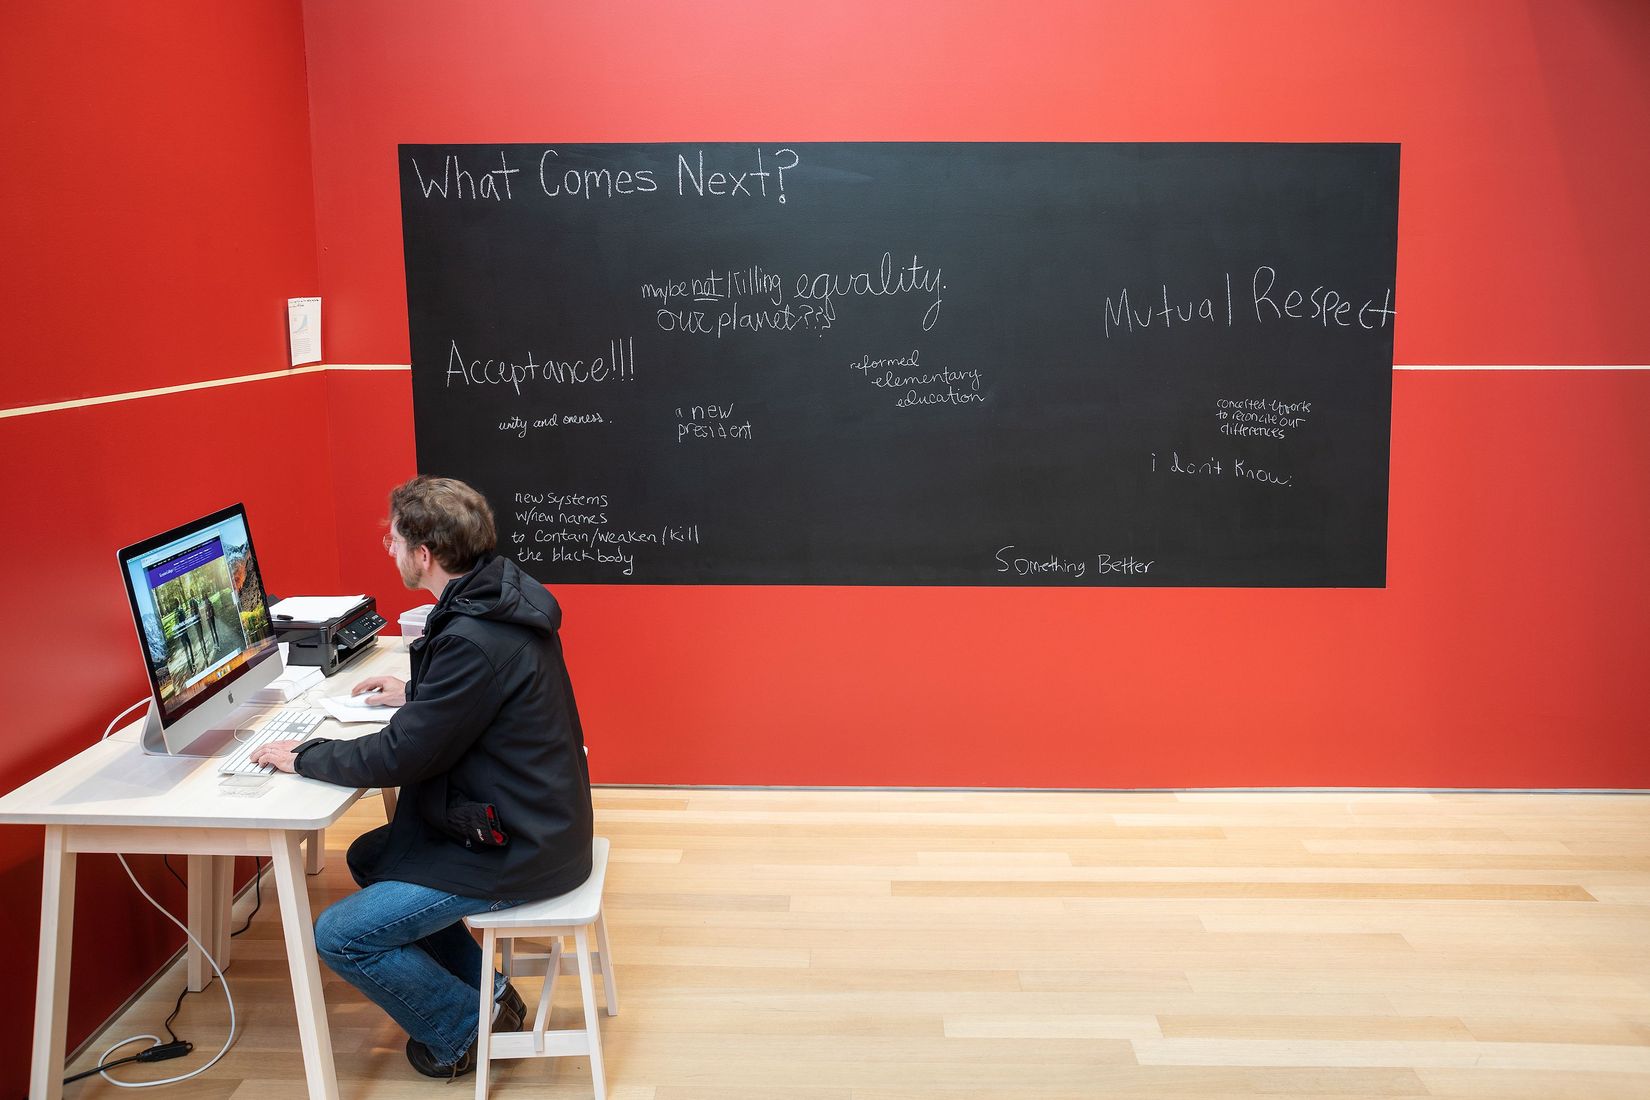 What Comes Next?
maybe not killing
our planet???
equality.
Mutual Respect
Acceptance!!!
reformed
elementary
education
unity and oneness.
a new
president
concerted efforts
to reconcile our
differences
i don't know.
new systems
w/new names
to contain/weaken/kill
the black body
Something Better